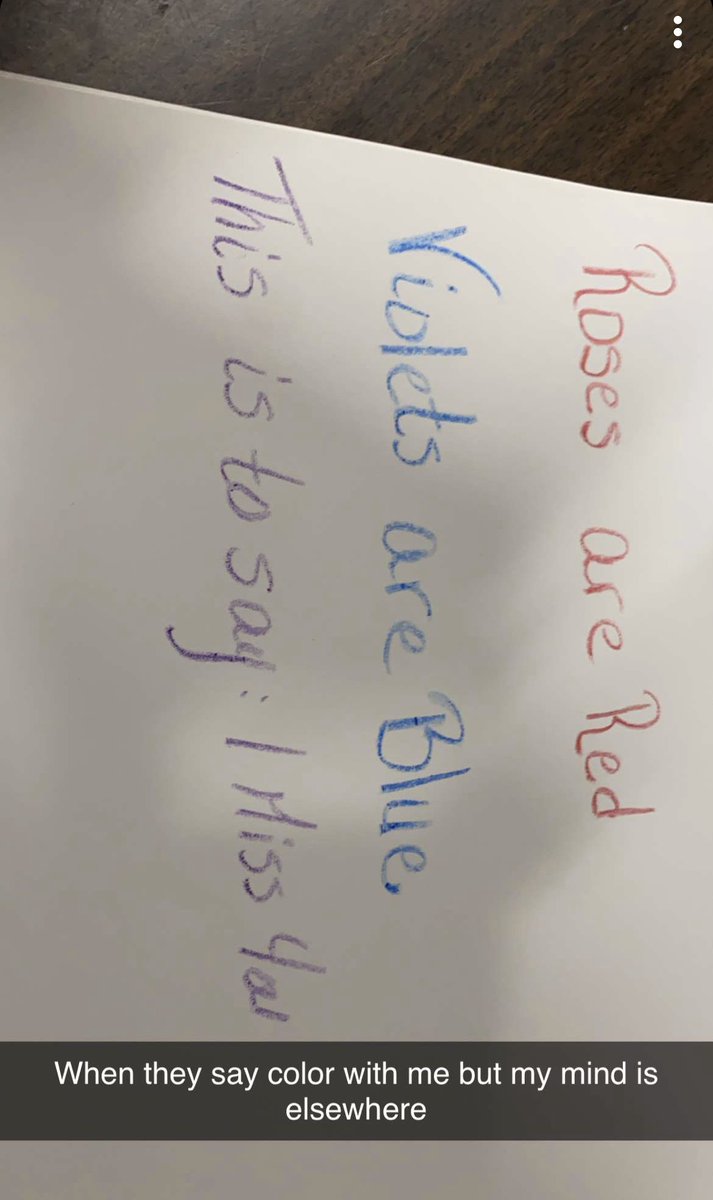 Roses are Red
Violets are Blue.
This is to say: I Miss You
When they say color with me but my mind is
elsewhere